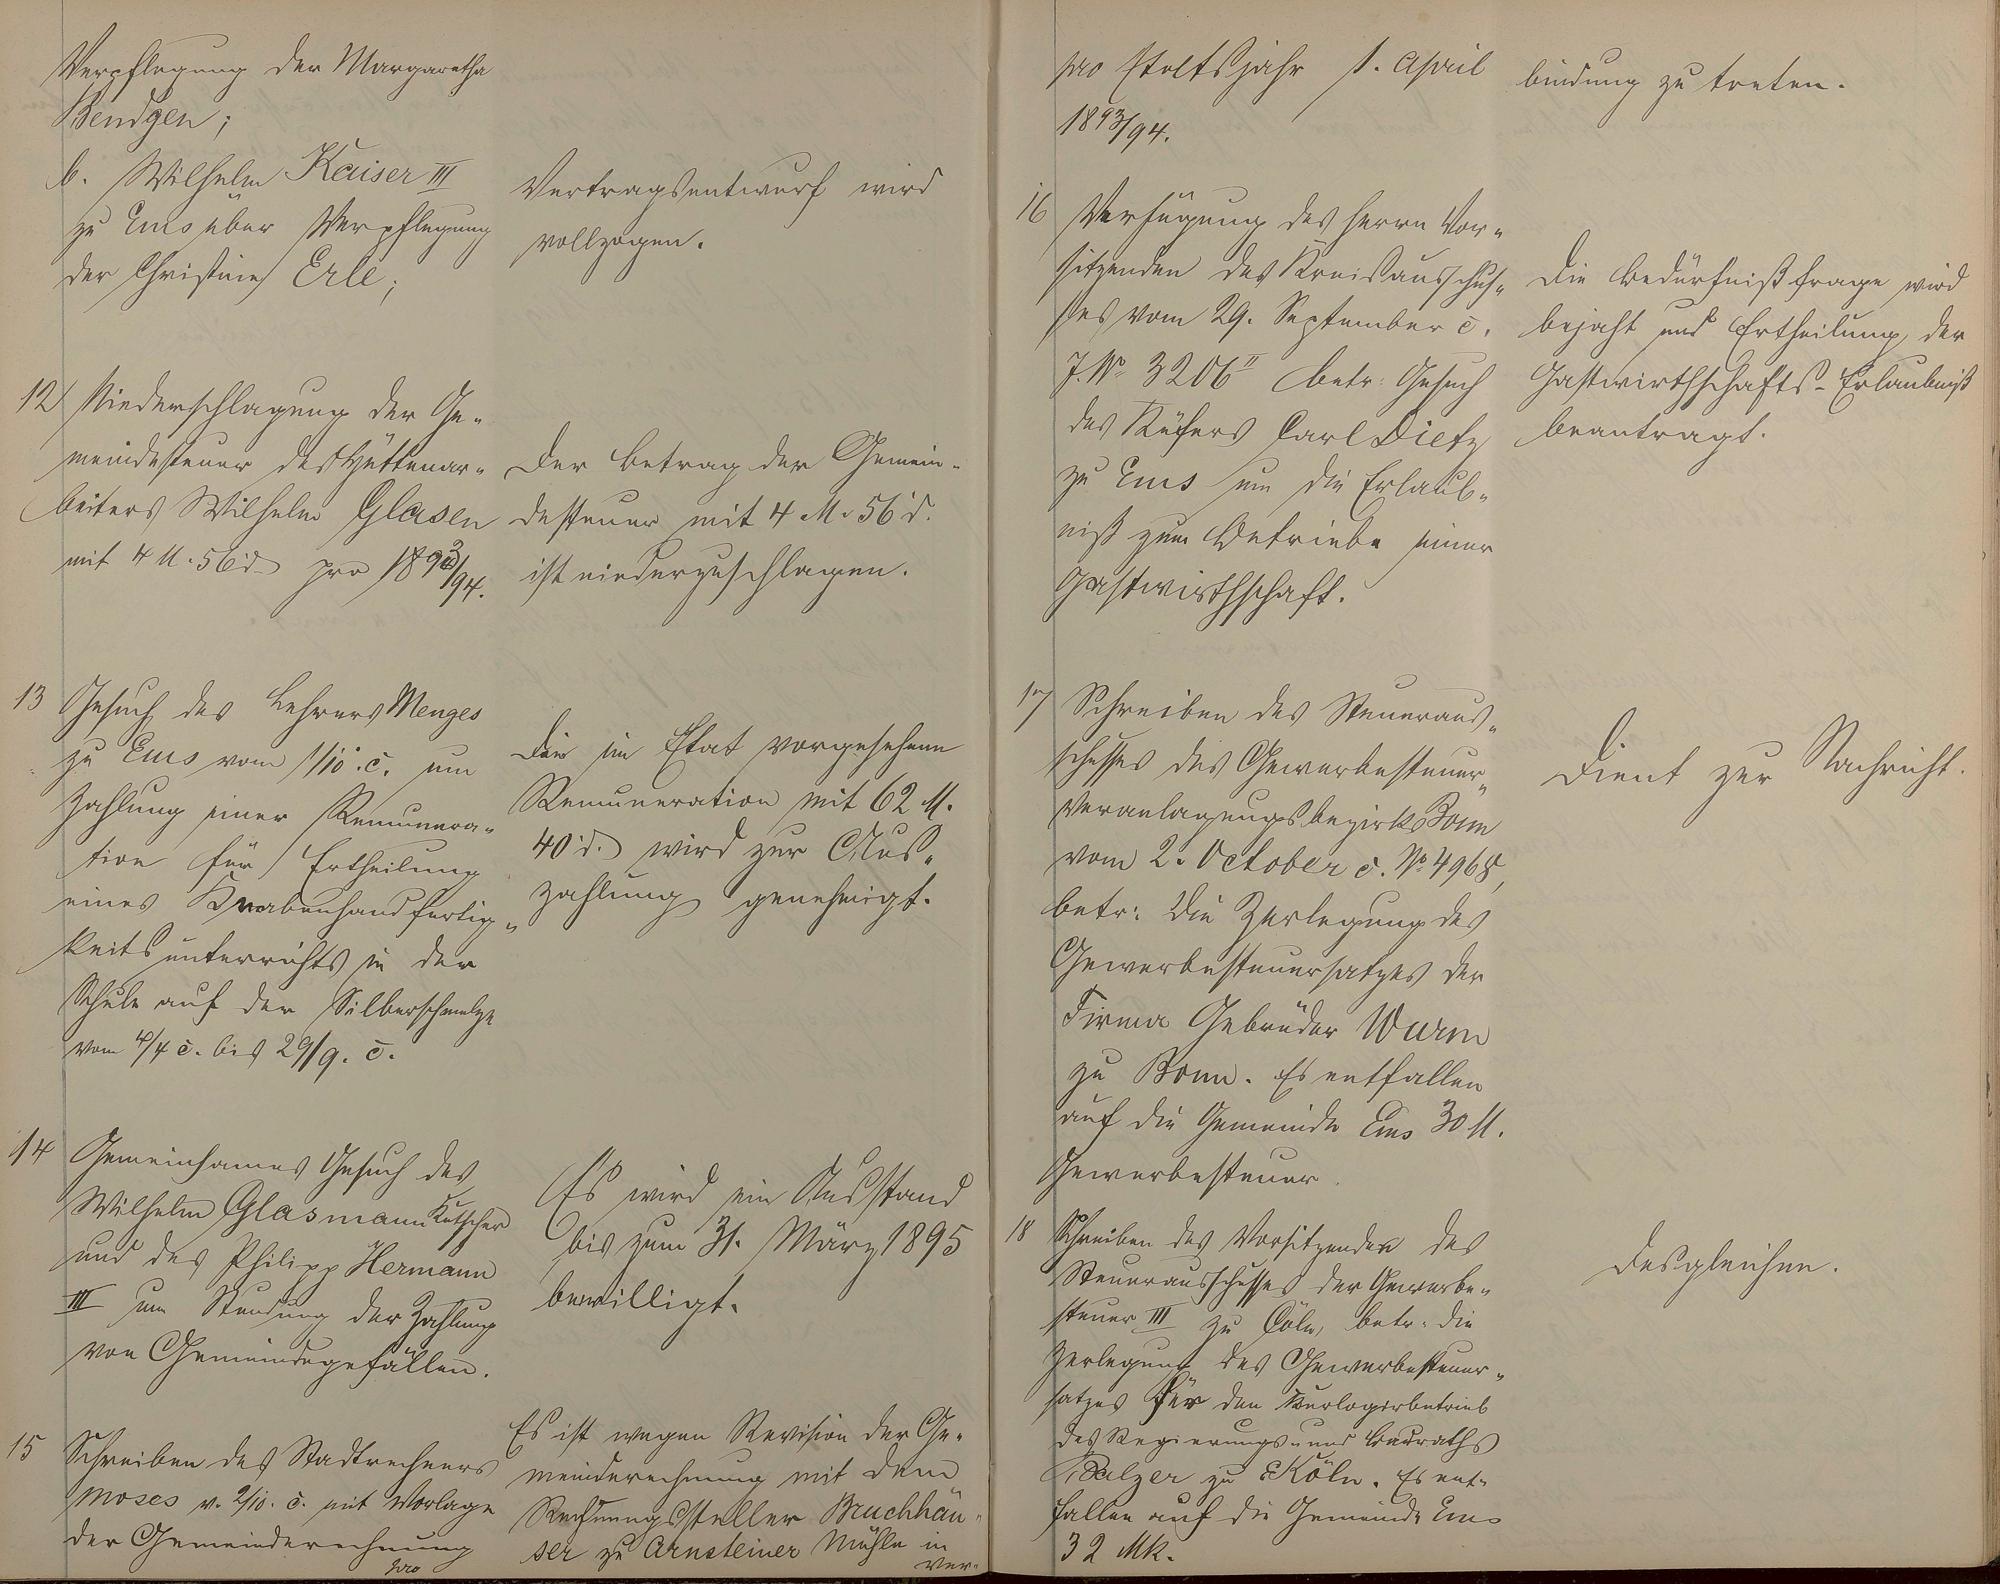 Verpflegung der Margaretha
Bendgen;
b. Wilhelm Kaiser III
zu Ems über Verpflegung
der Christine Erle;
Vertragsentwurf wird
vollzogen.
12 Niederschlagung der Ge-
meindesteuer des Hüttenar-
beiters Wilhelm Glasen
mit 4 M. 56 d. pro 1893/94.
Der Betrag der Gemein-
desteuer mit 4 M. 56 d.
ist niederzuschlagen.
13 Gesuch des Lehrers Menges
zu Ems vom 1/10. c. um
Zahlung einer Remunera-
tion für Ertheilung
eines Knabenhandfertig-
keitsunterrichts in der
Schule auf der Silberschmelze
vom 4/4 c. bis 29/9. c.
Die im Etat vorgesehene
Remuneration mit 62 M.
40 d. wird zur Aus-
zahlung genehmigt.
14 Gemeinsames Gesuch des
Wilhelm Glasmann Kutscher
und des Philipp Hermann
III um Stundung der Zahlung
von Gemeindegefällen.
Es wird ein Ausstand
bis zum 31. März 1895
bewilligt.
15 Schreiben des Stadtrechners
Moses v. 2/10. c. mit Vorlage
der Gemeinderechnung
pro
Es ist wegen Revision der Ge-
meinderechnung mit dem
Rechnungssteller Bruchhäu-
ser zu Arnsteiner Mühle in
Ver-
pro Etatsjahr 1. April
1893/94.
bindung zu treten.
16 Verfügung des Herrn Vor-
sitzenden des Kreisausschus-
ses vom 29. September c.
J. No 3206 II betr. Gesuch
des Küfers Carl Dietz
zu Ems um die Erlaub-
niß zum Betriebe einer
Gastwirthschaft.
Die Bedürfnißfrage wird
bejaht und Ertheilung der
Gastwirthschafts-Erlaubniß
beantragt.
17 Schreiben des Steueraus-
schusses des Gewerbesteuer-
Veranlagungsbezirks Bonn
vom 2. October c. No 4968,
betr: die Zerlegung des
Gewerbesteuersatzes der
Firma Gebrüder Wurm
zu Bonn. Es entfallen
auf die Gemeinde Ems 30 M.
Gewerbesteuer.
Dient zur Nachricht.
18 Schreiben des Vorsitzenden des
Steuerausschusses der Gewerbe-
steuer III zu Cöln, betr. die
Zerlegung des Gewerbesteuer-
satzes für den Kurlogirbetrieb
des Regierungs- und Bauraths
Balzer zu Köln. Es ent-
fallen auf die Gemeinde Ems
32 Mk.
Desgleichen.